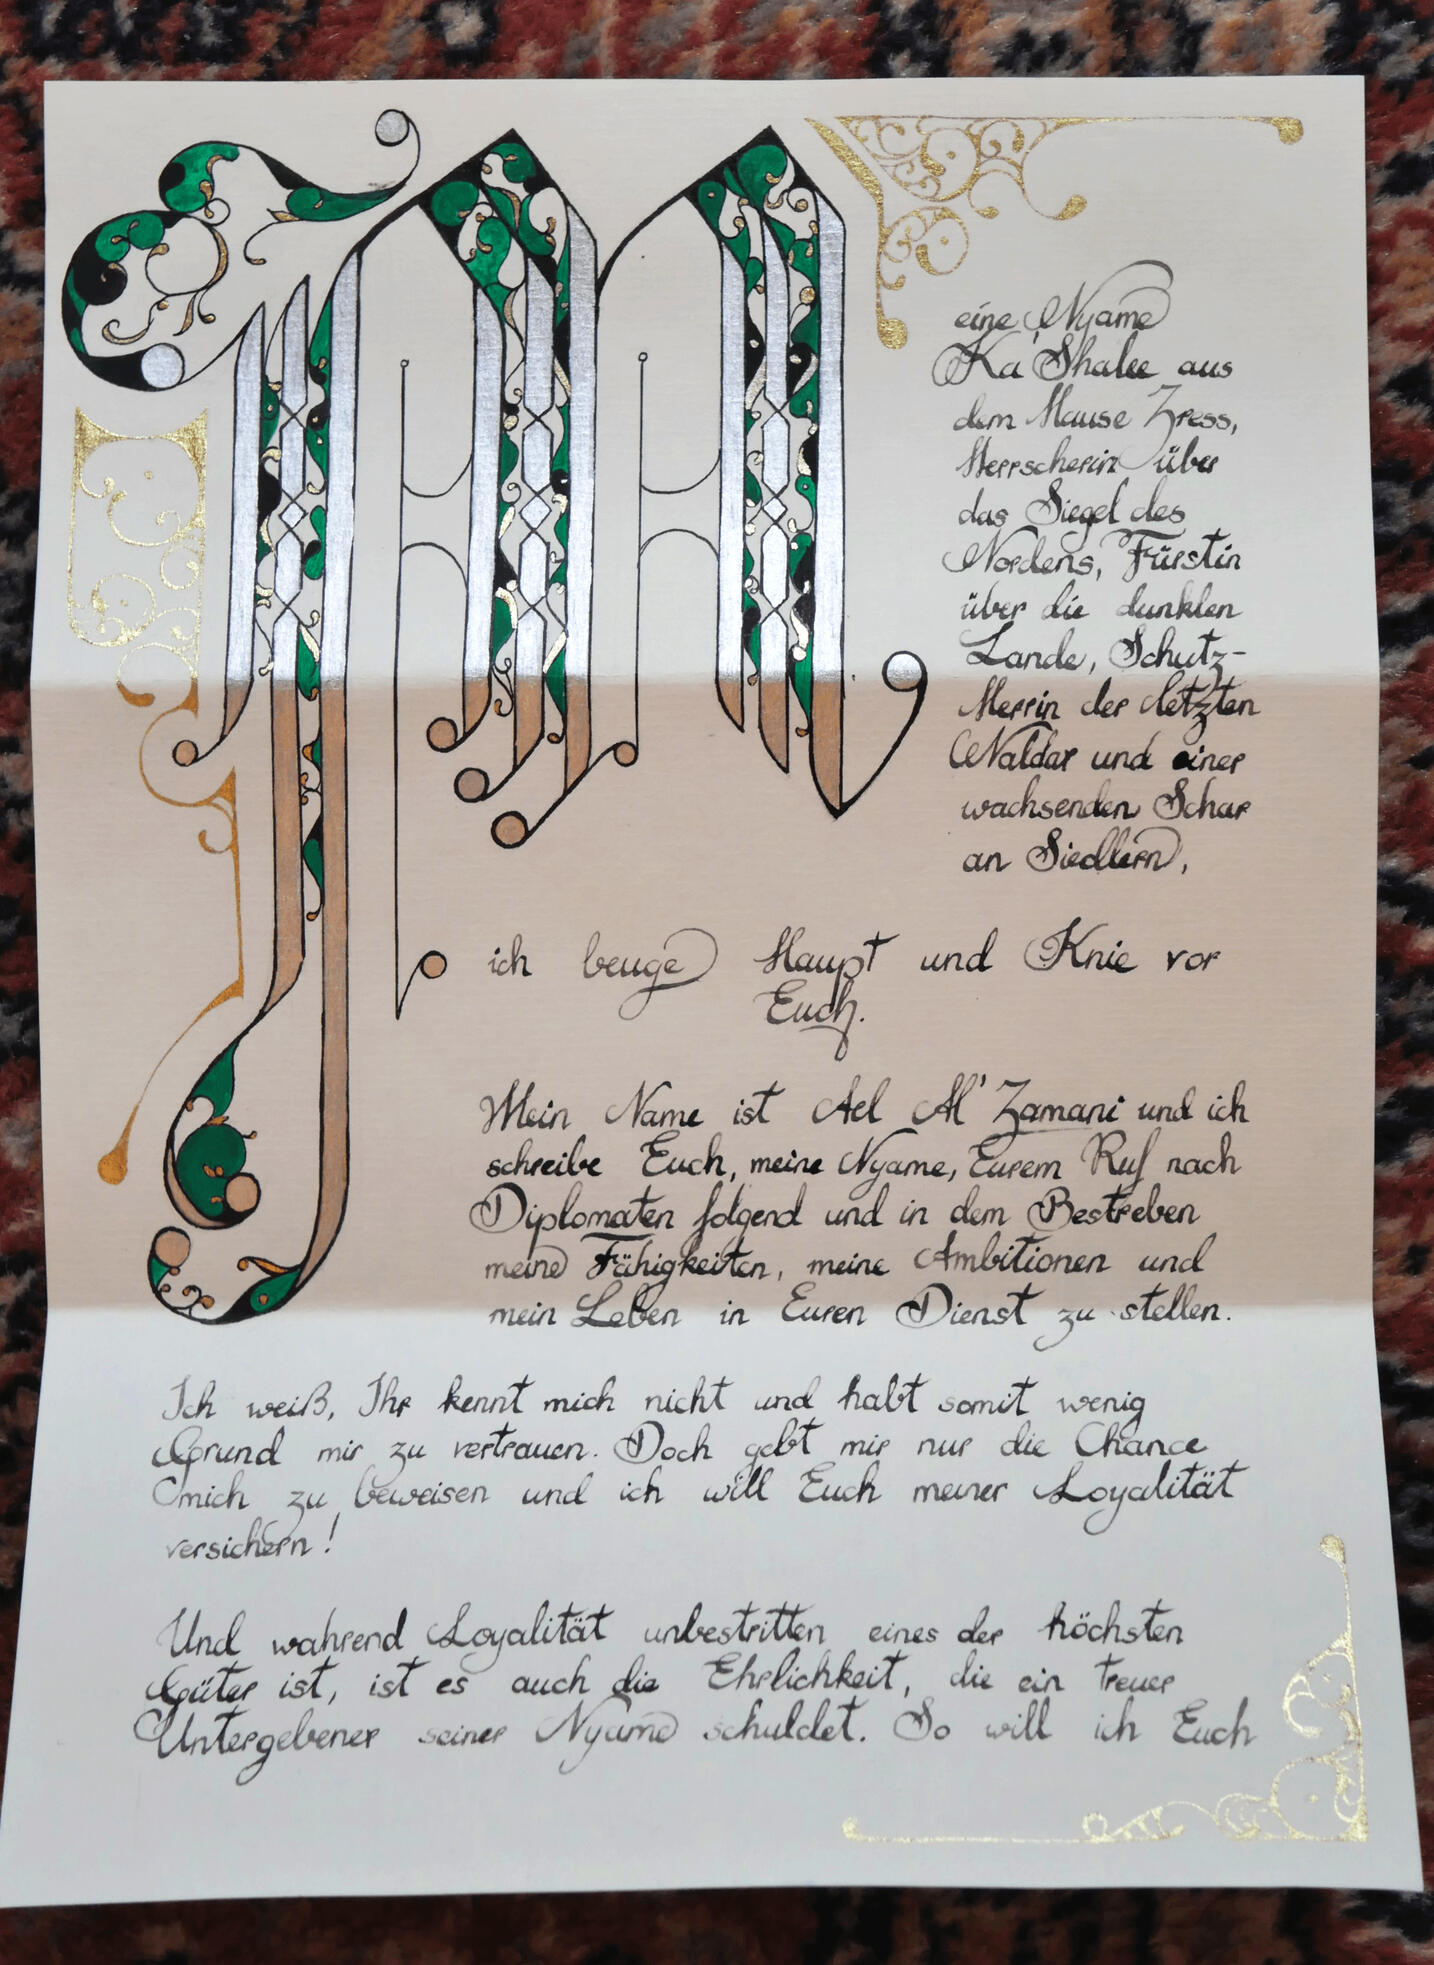 M
eine Nyame
Ka'Shalee aus
dem Hause Zress,
Herrscherin über
das Siegel des
Nordens, Fürstin
über die dunklen
Lande, Schutz-
Herrin der letzten
Waldar und einer
wachsenden Schar
an Siedlern,
ich beuge Haupt und Knie vor
Euch.
Mein Name ist Ael Al'Zamani und ich
schreibe Euch, meine Nyame, Eurem Ruf nach
Diplomaten folgend und in dem Bestreben
meine Fähigkeiten, meine Ambitionen und
mein Leben in Euren Dienst zu stellen.
Ich weiß, Ihr kennt mich nicht und habt somit wenig
Grund mir zu vertrauen. Doch gebt mir nur die Chance
mich zu beweisen und ich will Euch meiner Loyalität
versichern!
Und wahrend Loyalität unbestritten eines der höchsten
Güter ist, ist es auch die Ehrlichkeit, die ein treuer
Untergebener seiner Nyame schuldet. So will ich Euch